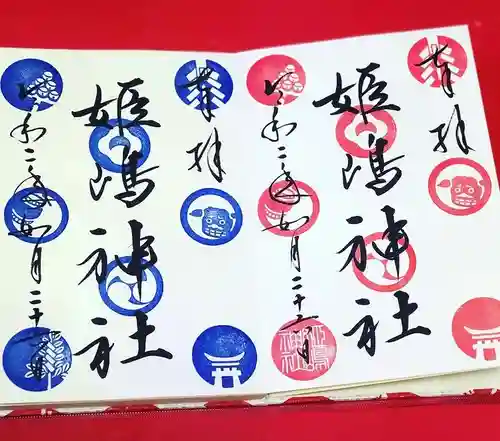 奉拝
姫嶋神社
令和二年如月二十一日
奉拝
姫嶋神社
令和二年如月二十一日